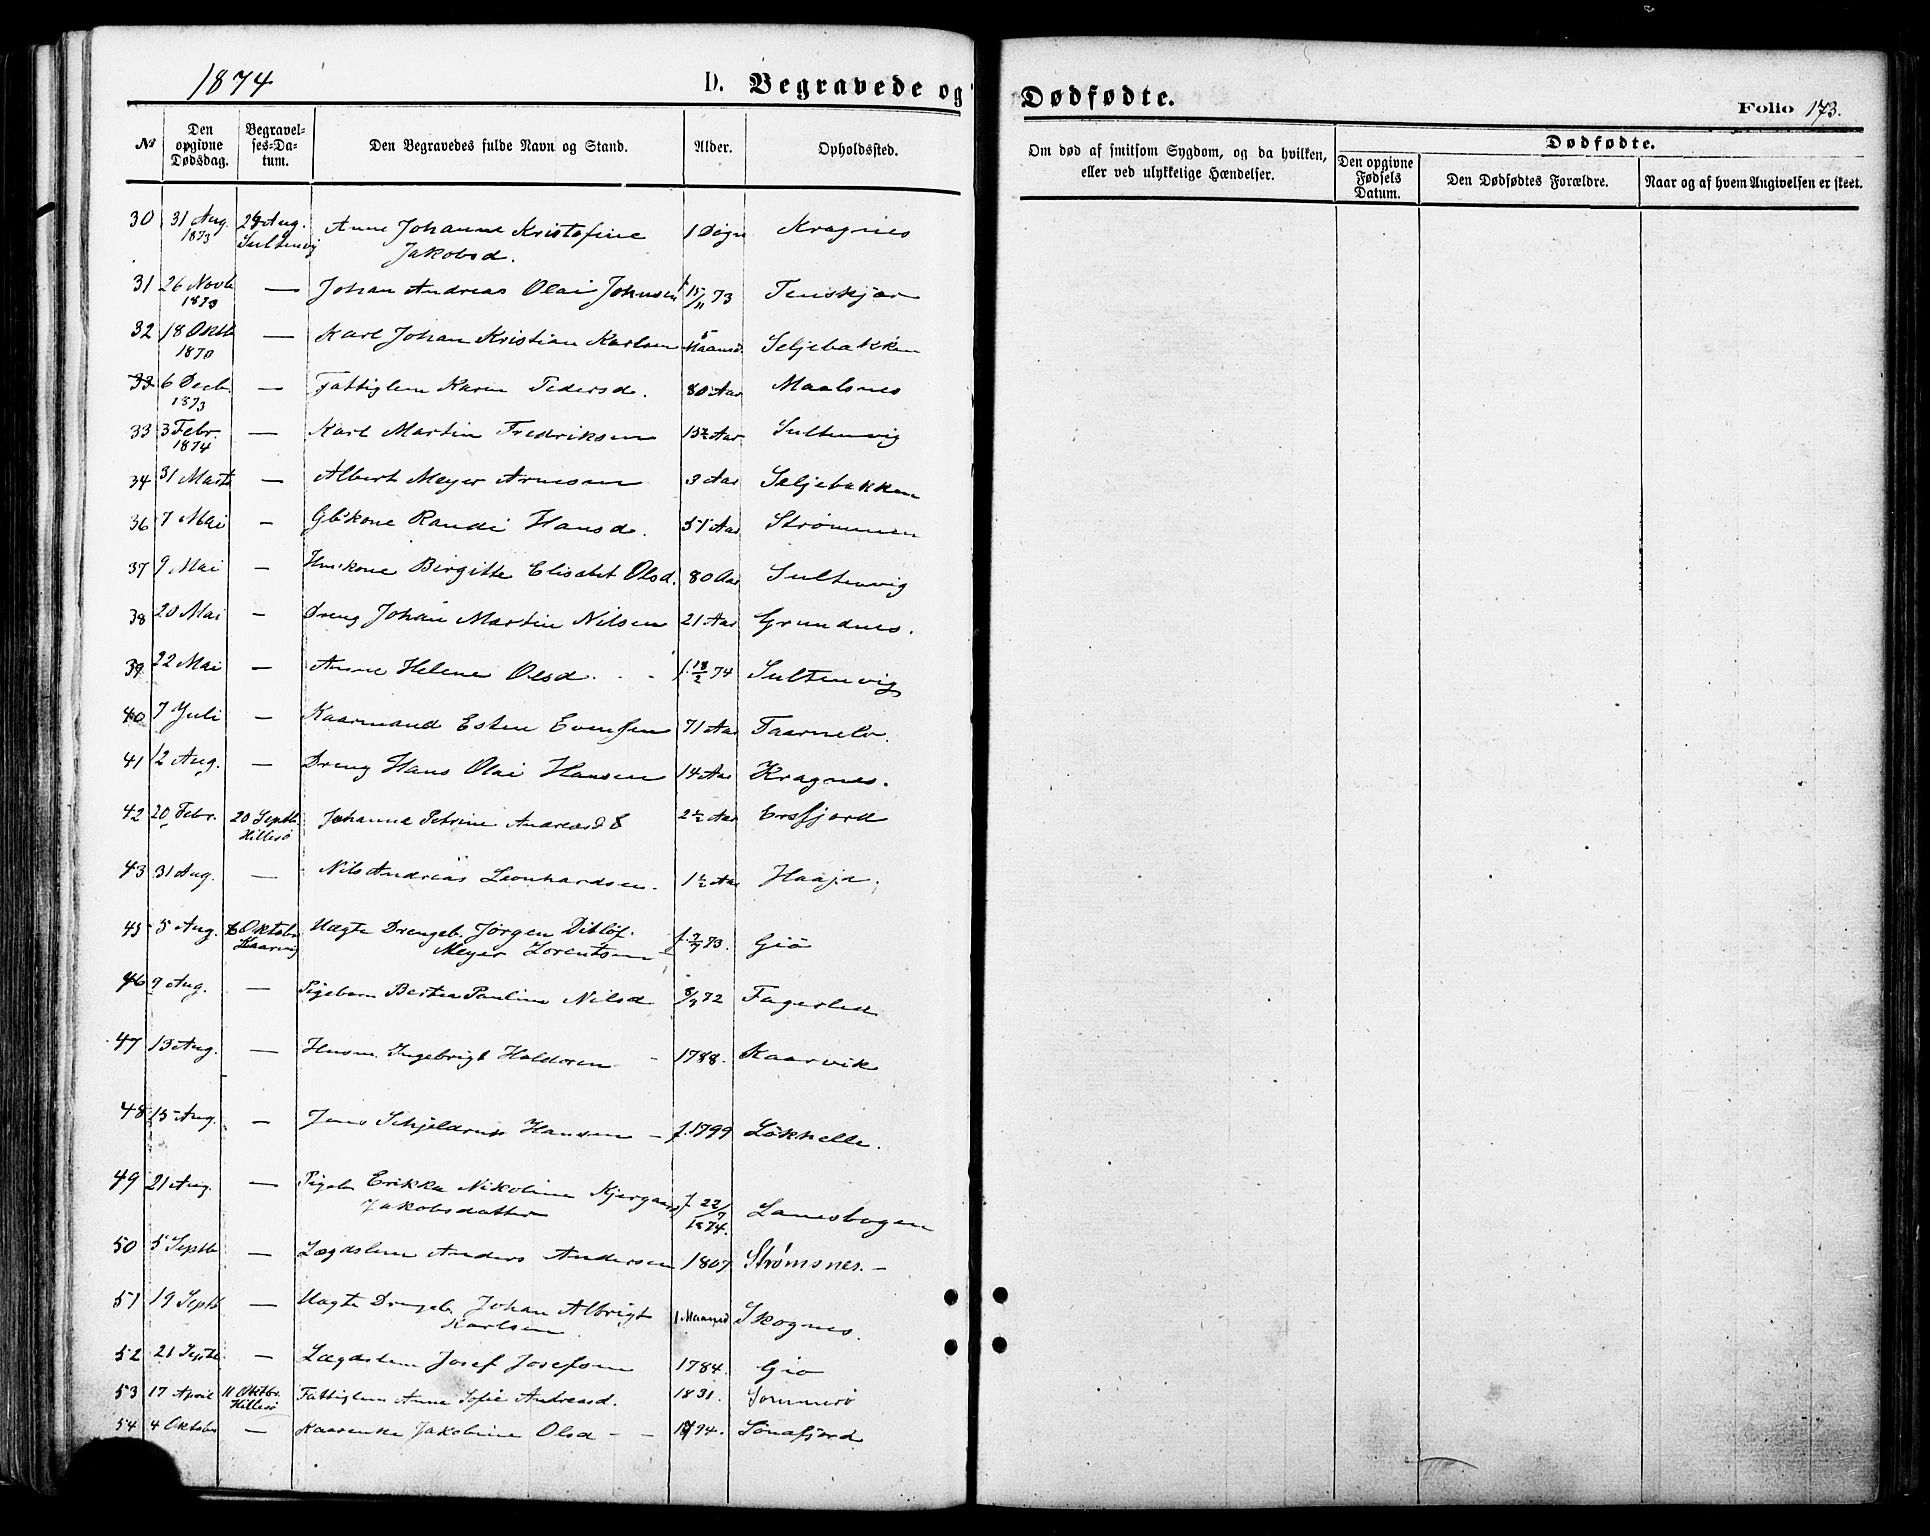 1874 D. Begravede og Dødfødte. Folio 173.
№ Den opgivne Dødsdag. Begravelses-Datum. Den Begravedes fulde Navn og Stand. Alder. Opholdssted.
Om død af smitsom Sygdom, og da hvilken, eller ved ulykkelige Hændelser. Dødfødte. Den opgivne Fødsels Datum. Den Dødfødtes Forældre. Naar og af hvem Angivelsen er skeet.
30 31 Aug. 1873 Aug. Sultenvig Anne Johanne Kristofine Jakobsd. 1 Døgn Kragnes
31 26 Novb 1873 — Johan Andreas Olai Johnsen f 15/11 73
32 18 Oktb 1870 — Karl Johan Kristian Karlsen 5 Maaned Seljebakken
33 6 Decb. 1873 — Fattiglem Karen Pedersd. 80 Aar Maalsnes
33 3 Febr. 1874 — Karl Martin Fredriksen Aar Sultenvig
34 31 Marts — Albert Meyer Arnesen 3 Aar Seljebakken
36 7 Mai — Gbkone Randi Hansd. 51 Aar Strømmen
37 9 Mai — Huskone Birgitte Elisabet Olsd. 80 Aar Sultenvig
38 20 Mai — Dreng Johan Martin Nilsen 21 Aar Grundnes.
39 22 Mai — Anne Helene Olsd. f. 18/2 74 Sultenvig
40 7 Juli — Kaarmand Esten Evensen 71 Aar Taarnelv.
41 12 Aug. — Dreng Hans Olai Hansen 14 Aar Kragnes.
42 20 Febr. 20 Septb. Hillesö Johanna Petrine Andreasd 2½ Aar Ersfjord
43 31 Aug. — Nils Andreas Leonhardsen. 1½ Aar Haaja
45 5 Aug. 6 Oktobr Kaarvig Uægte Drengeb. Jørgen Ditlöf Meyer Lorentsen f. 2/7 73. Giö
46 9 Aug. — Pigebarn Berthea Pauline Nilsd 8/3 72
47 13 Aug. — Husm. Ingebrigt Haldoren 1788. Kaarvik
48 15 Aug. — Jens Schjeldrup Hansen — f. 1799 Lökkelle.
49 21 Aug. — Pigeb Erikka Nikoline Kjergaard Jakobsdatter f. 22/7 1874. Lanesbogen
50 5 Septb — Lægdslem Anders Andersen 1807 Strømsnes. —
51 19 Septb — Uægte Drengeb. Johan Albrigt Karlsen 1 Maaned Skognes.
52 21 Septb. — Lægdslem Josef Josefsen 1784. Gio
53 17 April 11 Oktbr. Hillesö Fattiglem Anne Sofie Andreasd. 1831. Sommerö
54 4 Oktobr — Kaarenke Jakobine Olsd — — 1794. Sönafjord